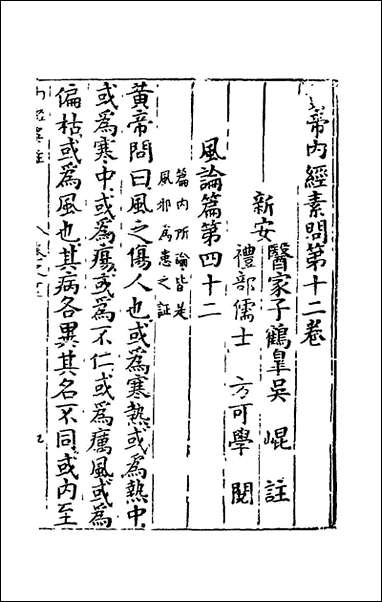 帝內經素問第十二卷
新安
醫家子鶴臯吳崐註
禮部儒士方可學閱
風論篇第四十二
篇內所論皆是
風邪為患之証
黃帝問曰風之傷人也或為寒熱或為熱中
或為寒中或為瘍或為不仁或為癘風或為
偏枯或為風也其病各異其名不同或內至